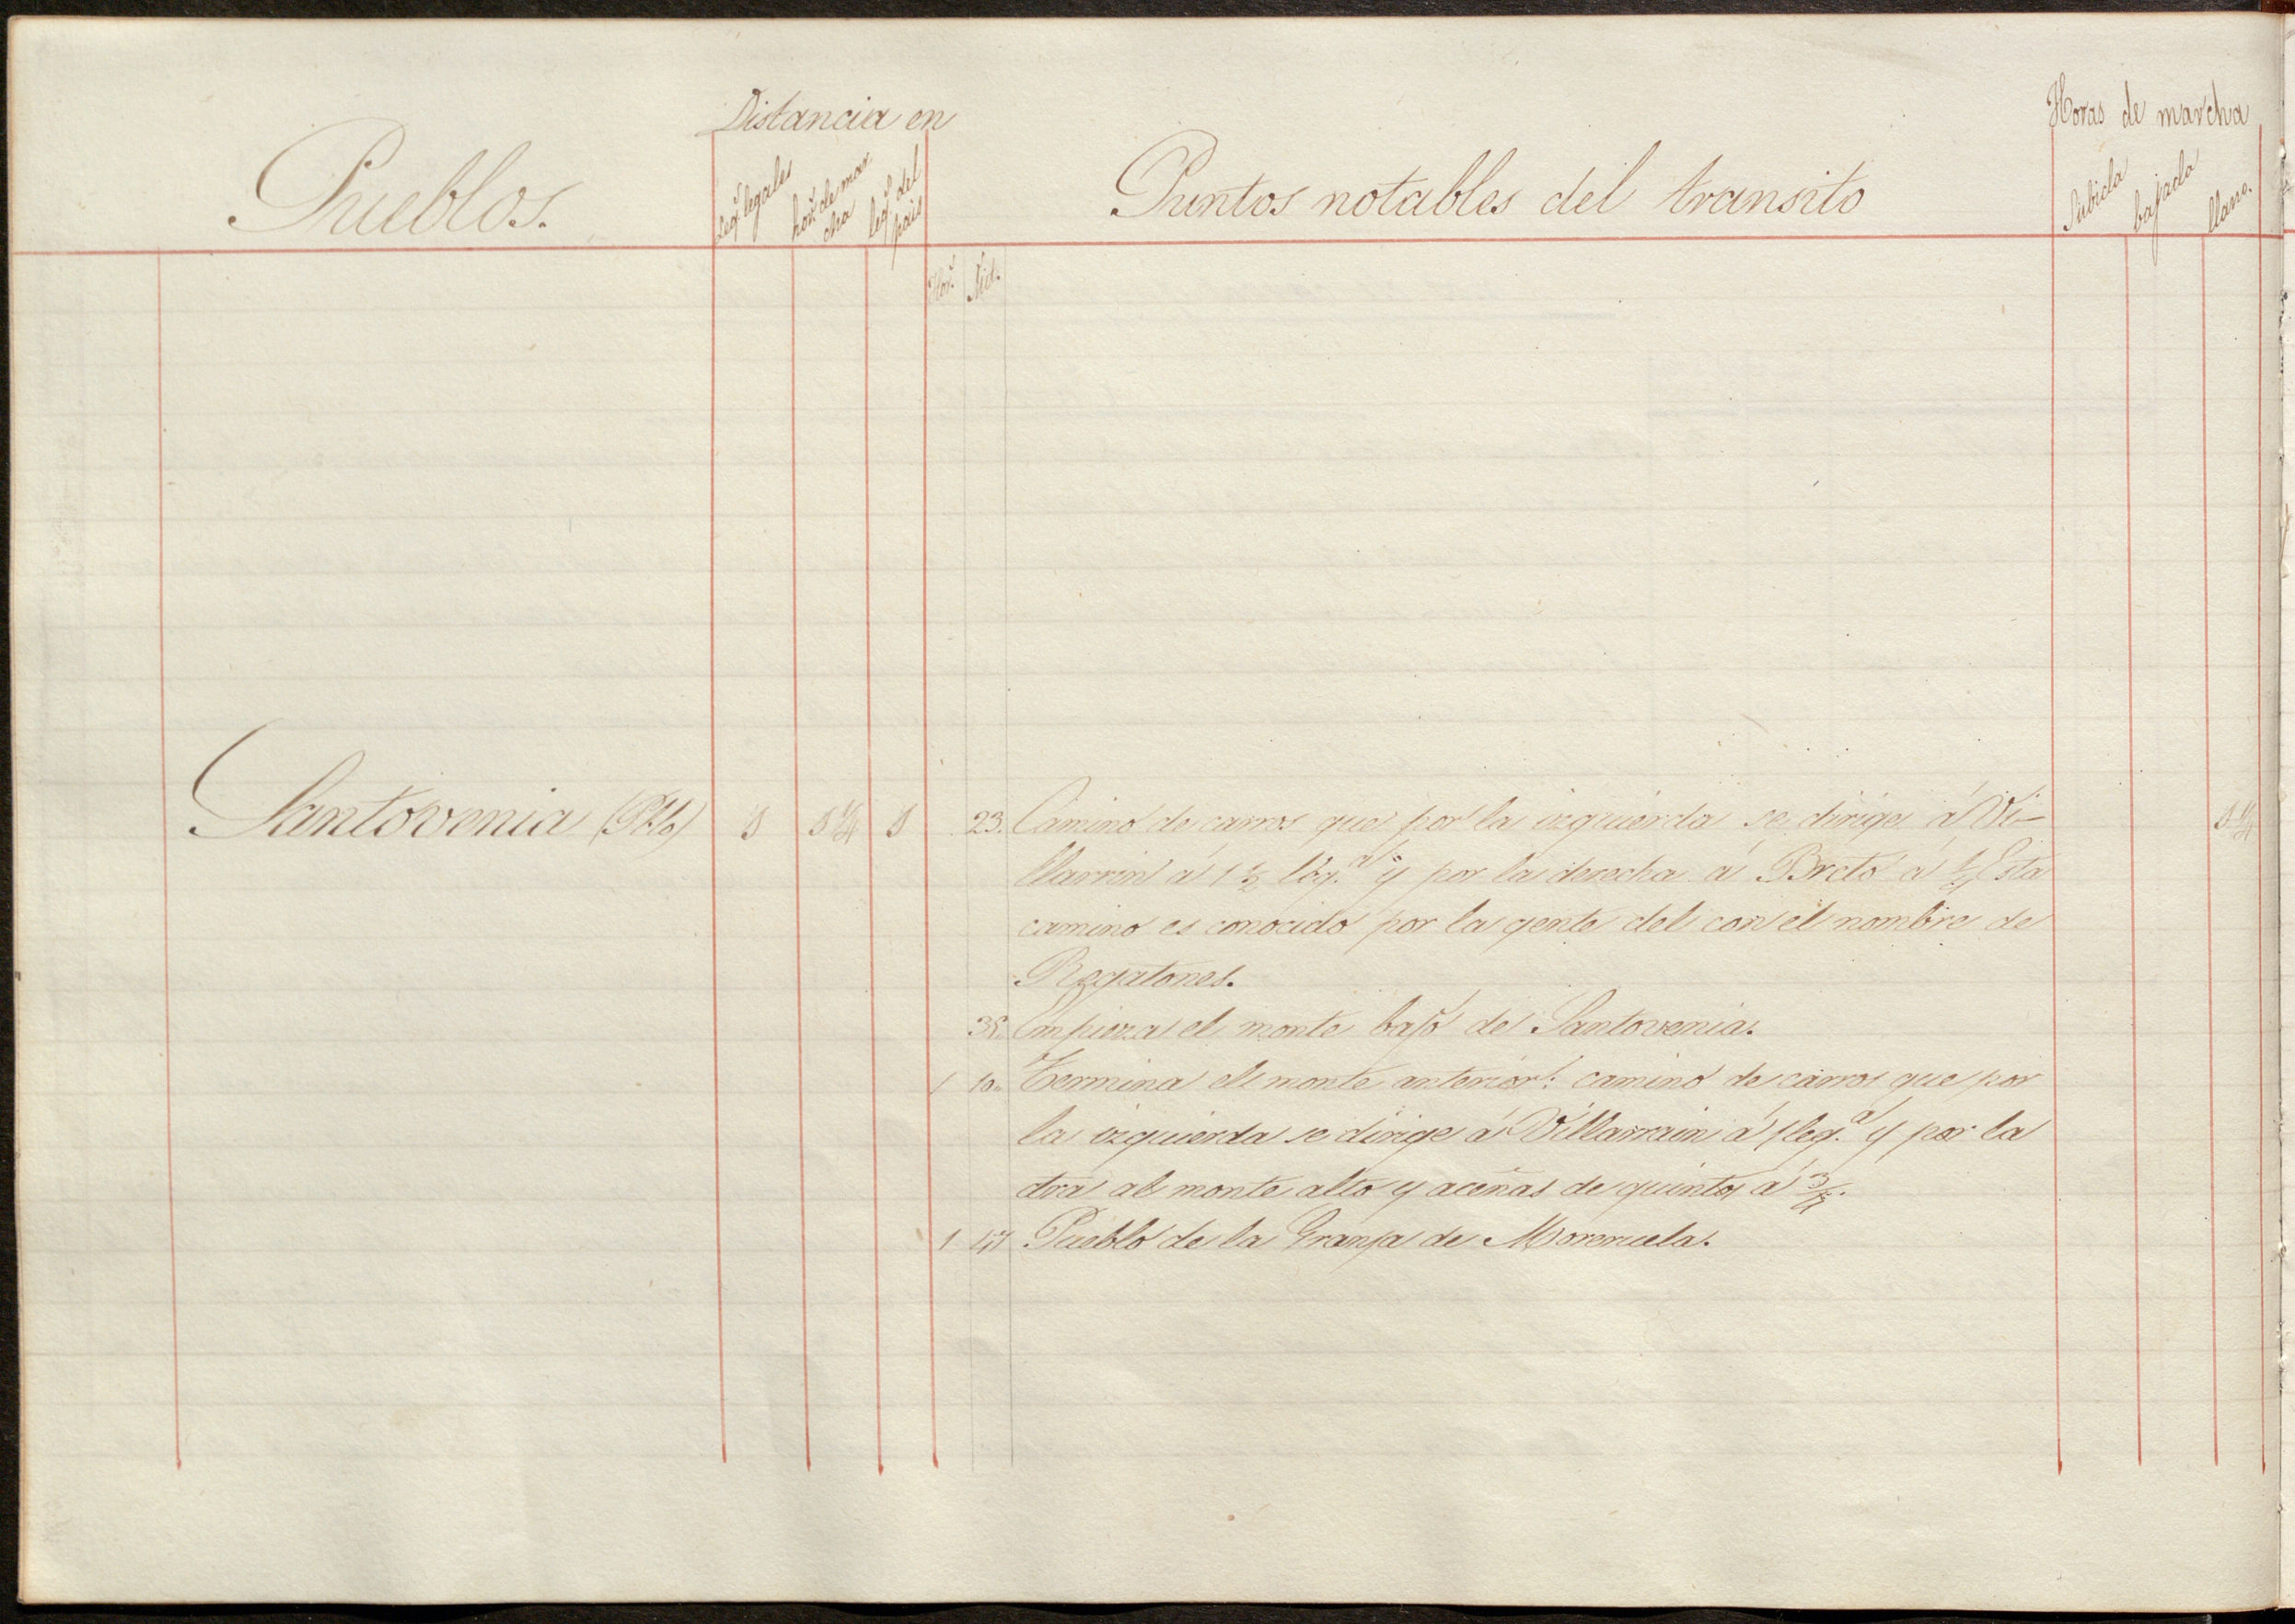 Distancia en
Horas de marcha
Pueblos.
leg.s legales
hor.s de mar
cha
leg.s del
pais
Puntos notables del transito
Subida
bajada
llano.
Hor.s
Mit.
Santovenia 1 1 1/4 1 23. Camino de carros que por la izquierda se dirige á Vi- 1 1/4
llarrin á 1 1/2 leg.a y por la derecha á Breto á 1/2 Este
camino es conocido por la gente del con el nombre de
Regatones.
Empieza el monte bajo de Santovenia.
1 10. Termina el monte anterior: camino de carros que por
la izquierda se dirige á Villarrain á 1 leg.a y por la
dra al monte alto y aceñas de quintos á 3/4.
1 47 Pueblo de la Granja de Moreruela.